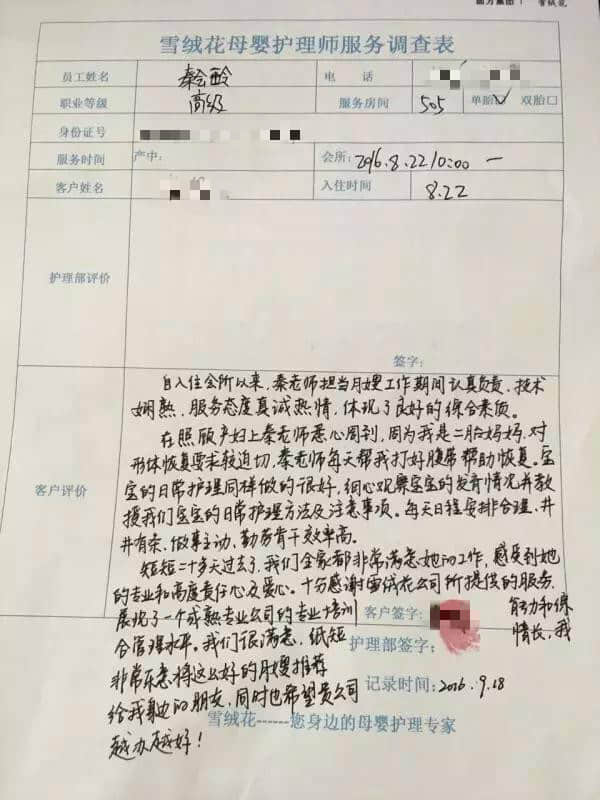 雪绒花
雪绒花母婴护理师服务调查表
员工姓名 秦会玲 电 话
职业等级 高级 服务房间 505 单胎☑ 双胎☐
身份证号
服务时间 产中: 会所: 2016.8.22 10:00 —
客户姓名 入住时间 8.22
护理部评价
签字:
客户评价
自入住会所以来,秦老师担当月嫂工作期间认真负责、技术
娴熟、服务态度真诚热情,体现了良好的综合素质。
在照顾产妇上秦老师悉心周到,因为我是二胎妈妈,对
形体恢复要求较迫切,秦老师每天帮我打好腹带帮助恢复。宝
宝的日常护理同样做的很好,细心观察宝宝的发育情况并教
授我们宝宝的日常护理方法及注意事项。每天日程安排合理、井
井有条,做事主动、勤劳肯干效率高。
短短二十多天过去了,我们全家都非常满意她的工作,感受到她
的专业和高度责任心及爱心。十分感谢雪绒花公司所提供的服务,
展现了一个成熟专业公司的专业培训能力和综
合管理水平。我们很满意,纸短情长,我
非常乐意将这么好的月嫂推荐
给我身边的朋友,同时也希望贵公司
越办越好!
客户签字:
护理部签字:
记录时间: 2016.9.18
雪绒花------您身边的母婴护理专家